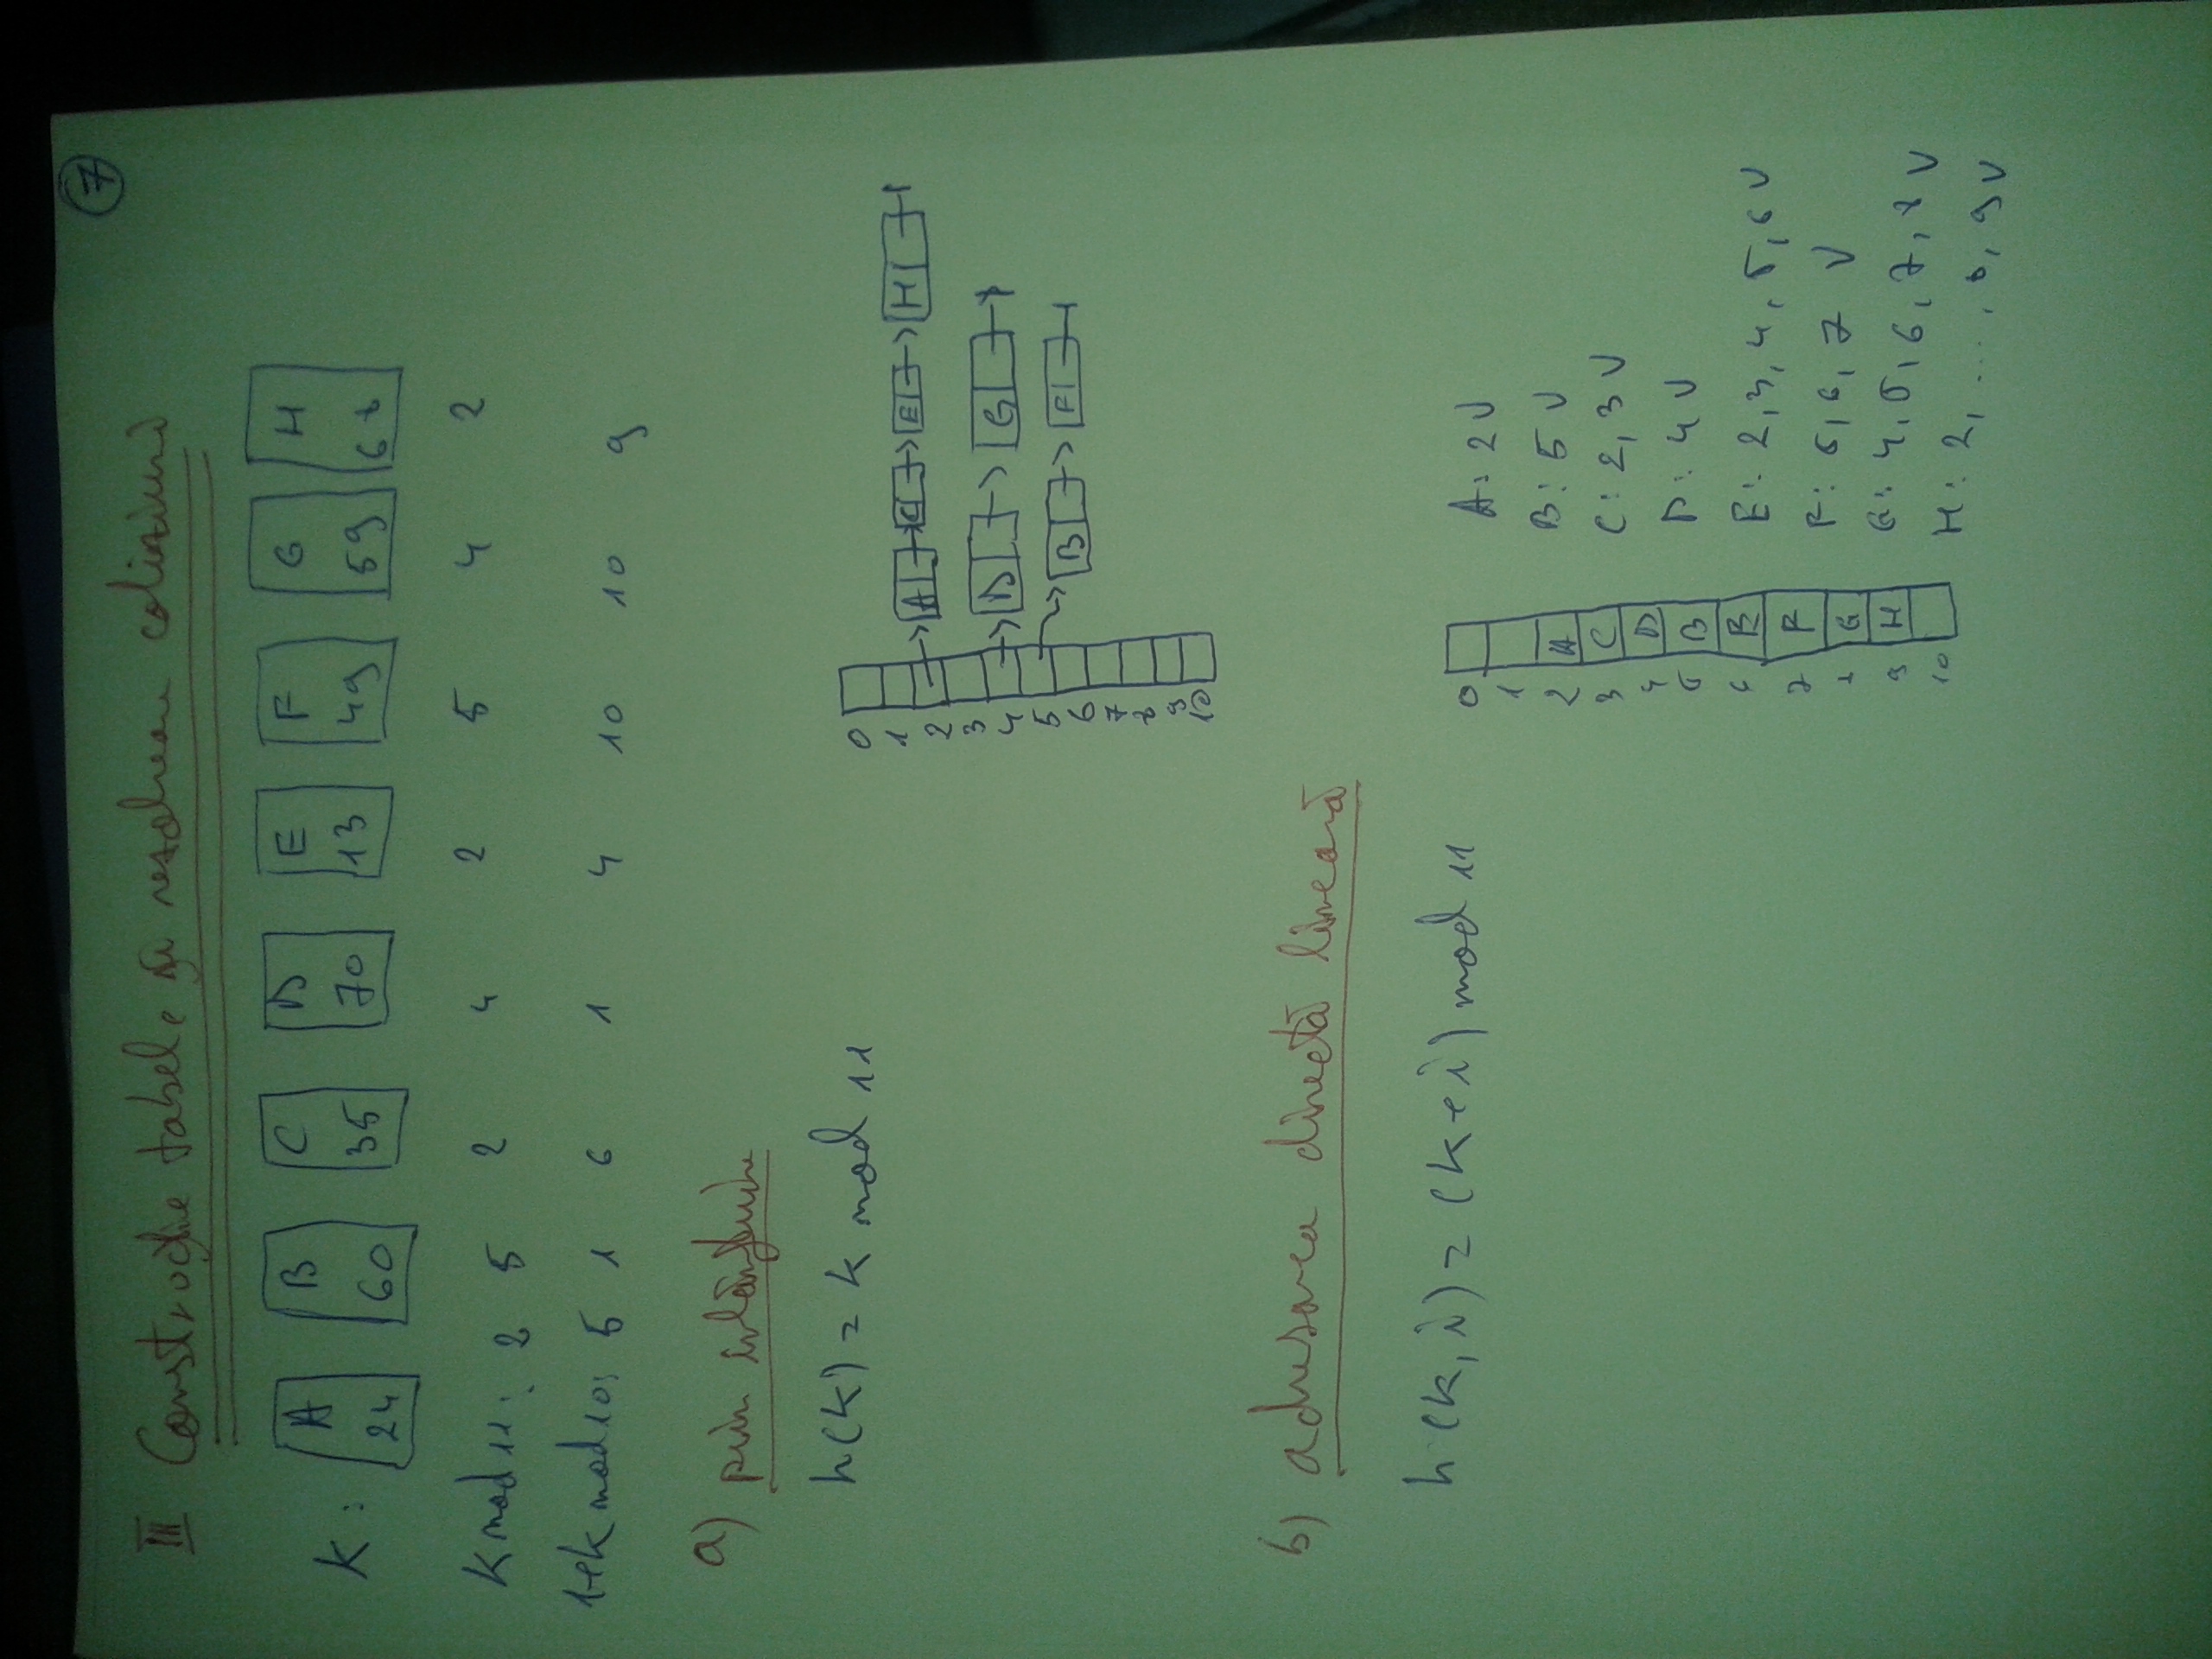 7
III Construcție tabele și rezolvarea coliziunii
K: A B C D E F G H
24 60 35 70 13 49 59 68
K mod 11: 2 5 2 4 2 5 4 2
1+k mod 10: 5 1 6 1 4 10 10 9
a) prin înlănțuire
h(k) = k mod 11
0
1
2 → A → C → E → H
3
4 → D → G
5 → B → F
6
7
8
9
10
b) adresarea directă lineară
h(k, i) = (k+i) mod 11
0
1
2 A
3 C
4 D
5 B
6 E
7 F
8 G
9 H
10
A: 2 V
B: 5 V
C: 2, 3 V
D: 4 V
E: 2, 3, 4, 5, 6 V
F: 5, 6, 7 V
G: 4, 5, 6, 7, 8 V
H: 2, ...., 8, 9 V